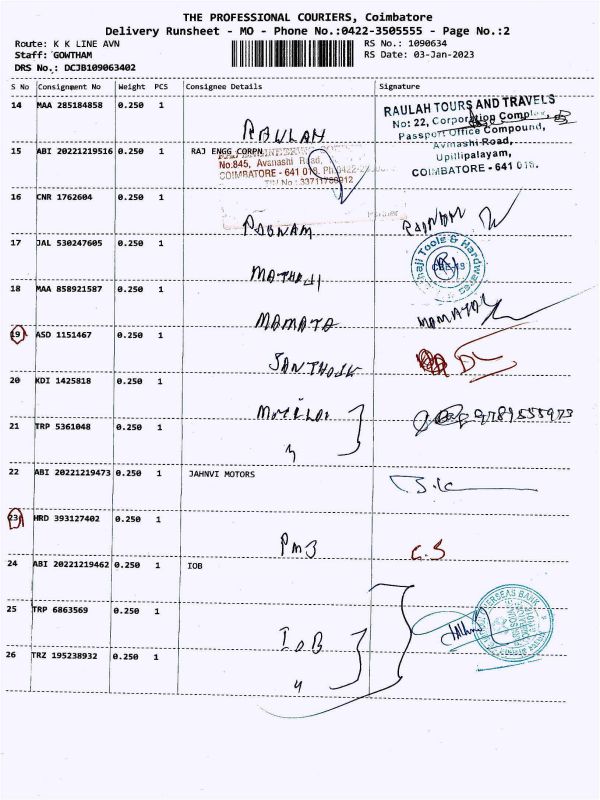 THE PROFESSIONAL COURIERS, Coimbatore
Delivery Runsheet - MO - Phone No.:0422-3505555 - Page No.:2
Route: K K LINE AVN
RS No.: 1090634
Staff: GOWTHAM
RS Date: 03-Jan-2023
DRS No.: DCJB109063402
S No Consignment No Weight PCS Consignee Details Signature
14 MAA 285184858 0.250 1
RAULAH
RAULAH TOURS AND TRAVELS
No: 22, Corporation Complex,
Passport Office Compound,
Avinashi Road,
Upillipalayam,
COIMBATORE - 641 018.
15 ABI 20221219516 0.250 1 RAJ ENGG CORPN
No.845, Avanashi Road,
COIMBATORE - 641 018. Ph:0422-
TIN No : 33711760912
16 CNR 1762604 0.250 1
POONAM
POONAM
17 JAL 530247605 0.250 1
MATHAJI
Tools & Hardwares
18 MAA 858921587 0.250 1
MAMATA
MAMATA
19 ASD 1151467 0.250 1
SANTHOSH
20 KDI 1425818 0.250 1
MOTILAL
9789555973
21 TRP 5361048 0.250 1
22 ABI 20221219473 0.250 1 JAHNVI MOTORS
23 HRD 393127402 0.250 1
PMJ
G.S
24 ABI 20221219462 0.250 1 IOB
25 TRP 6863569 0.250 1
IOB
OVERSEAS BANK
26 TRZ 195238932 0.250 1